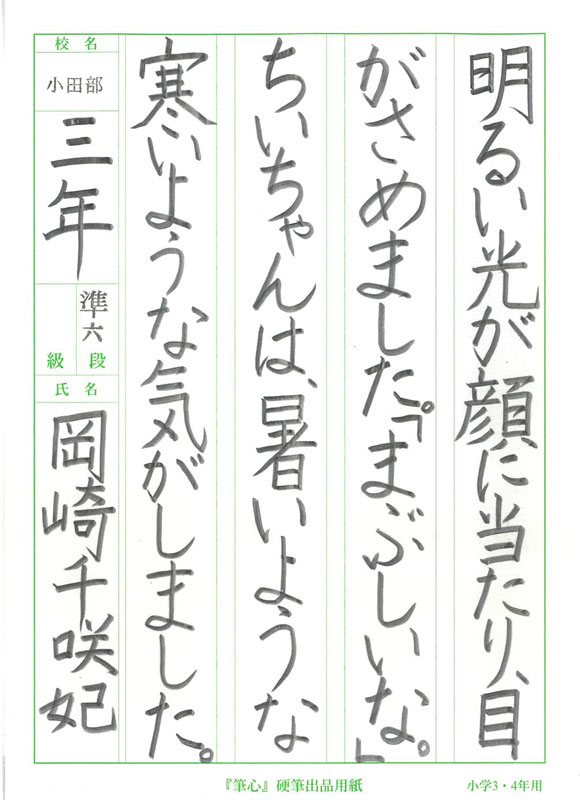 明るい光が顔に当たり、目
がさめました。「まぶしいな。」
ちいちゃんは、暑いような
寒いような気がしました。
校名
小田部
三年
準六
級段
氏名
岡崎千咲妃
『筆心』硬筆出品用紙
小学3・4年用